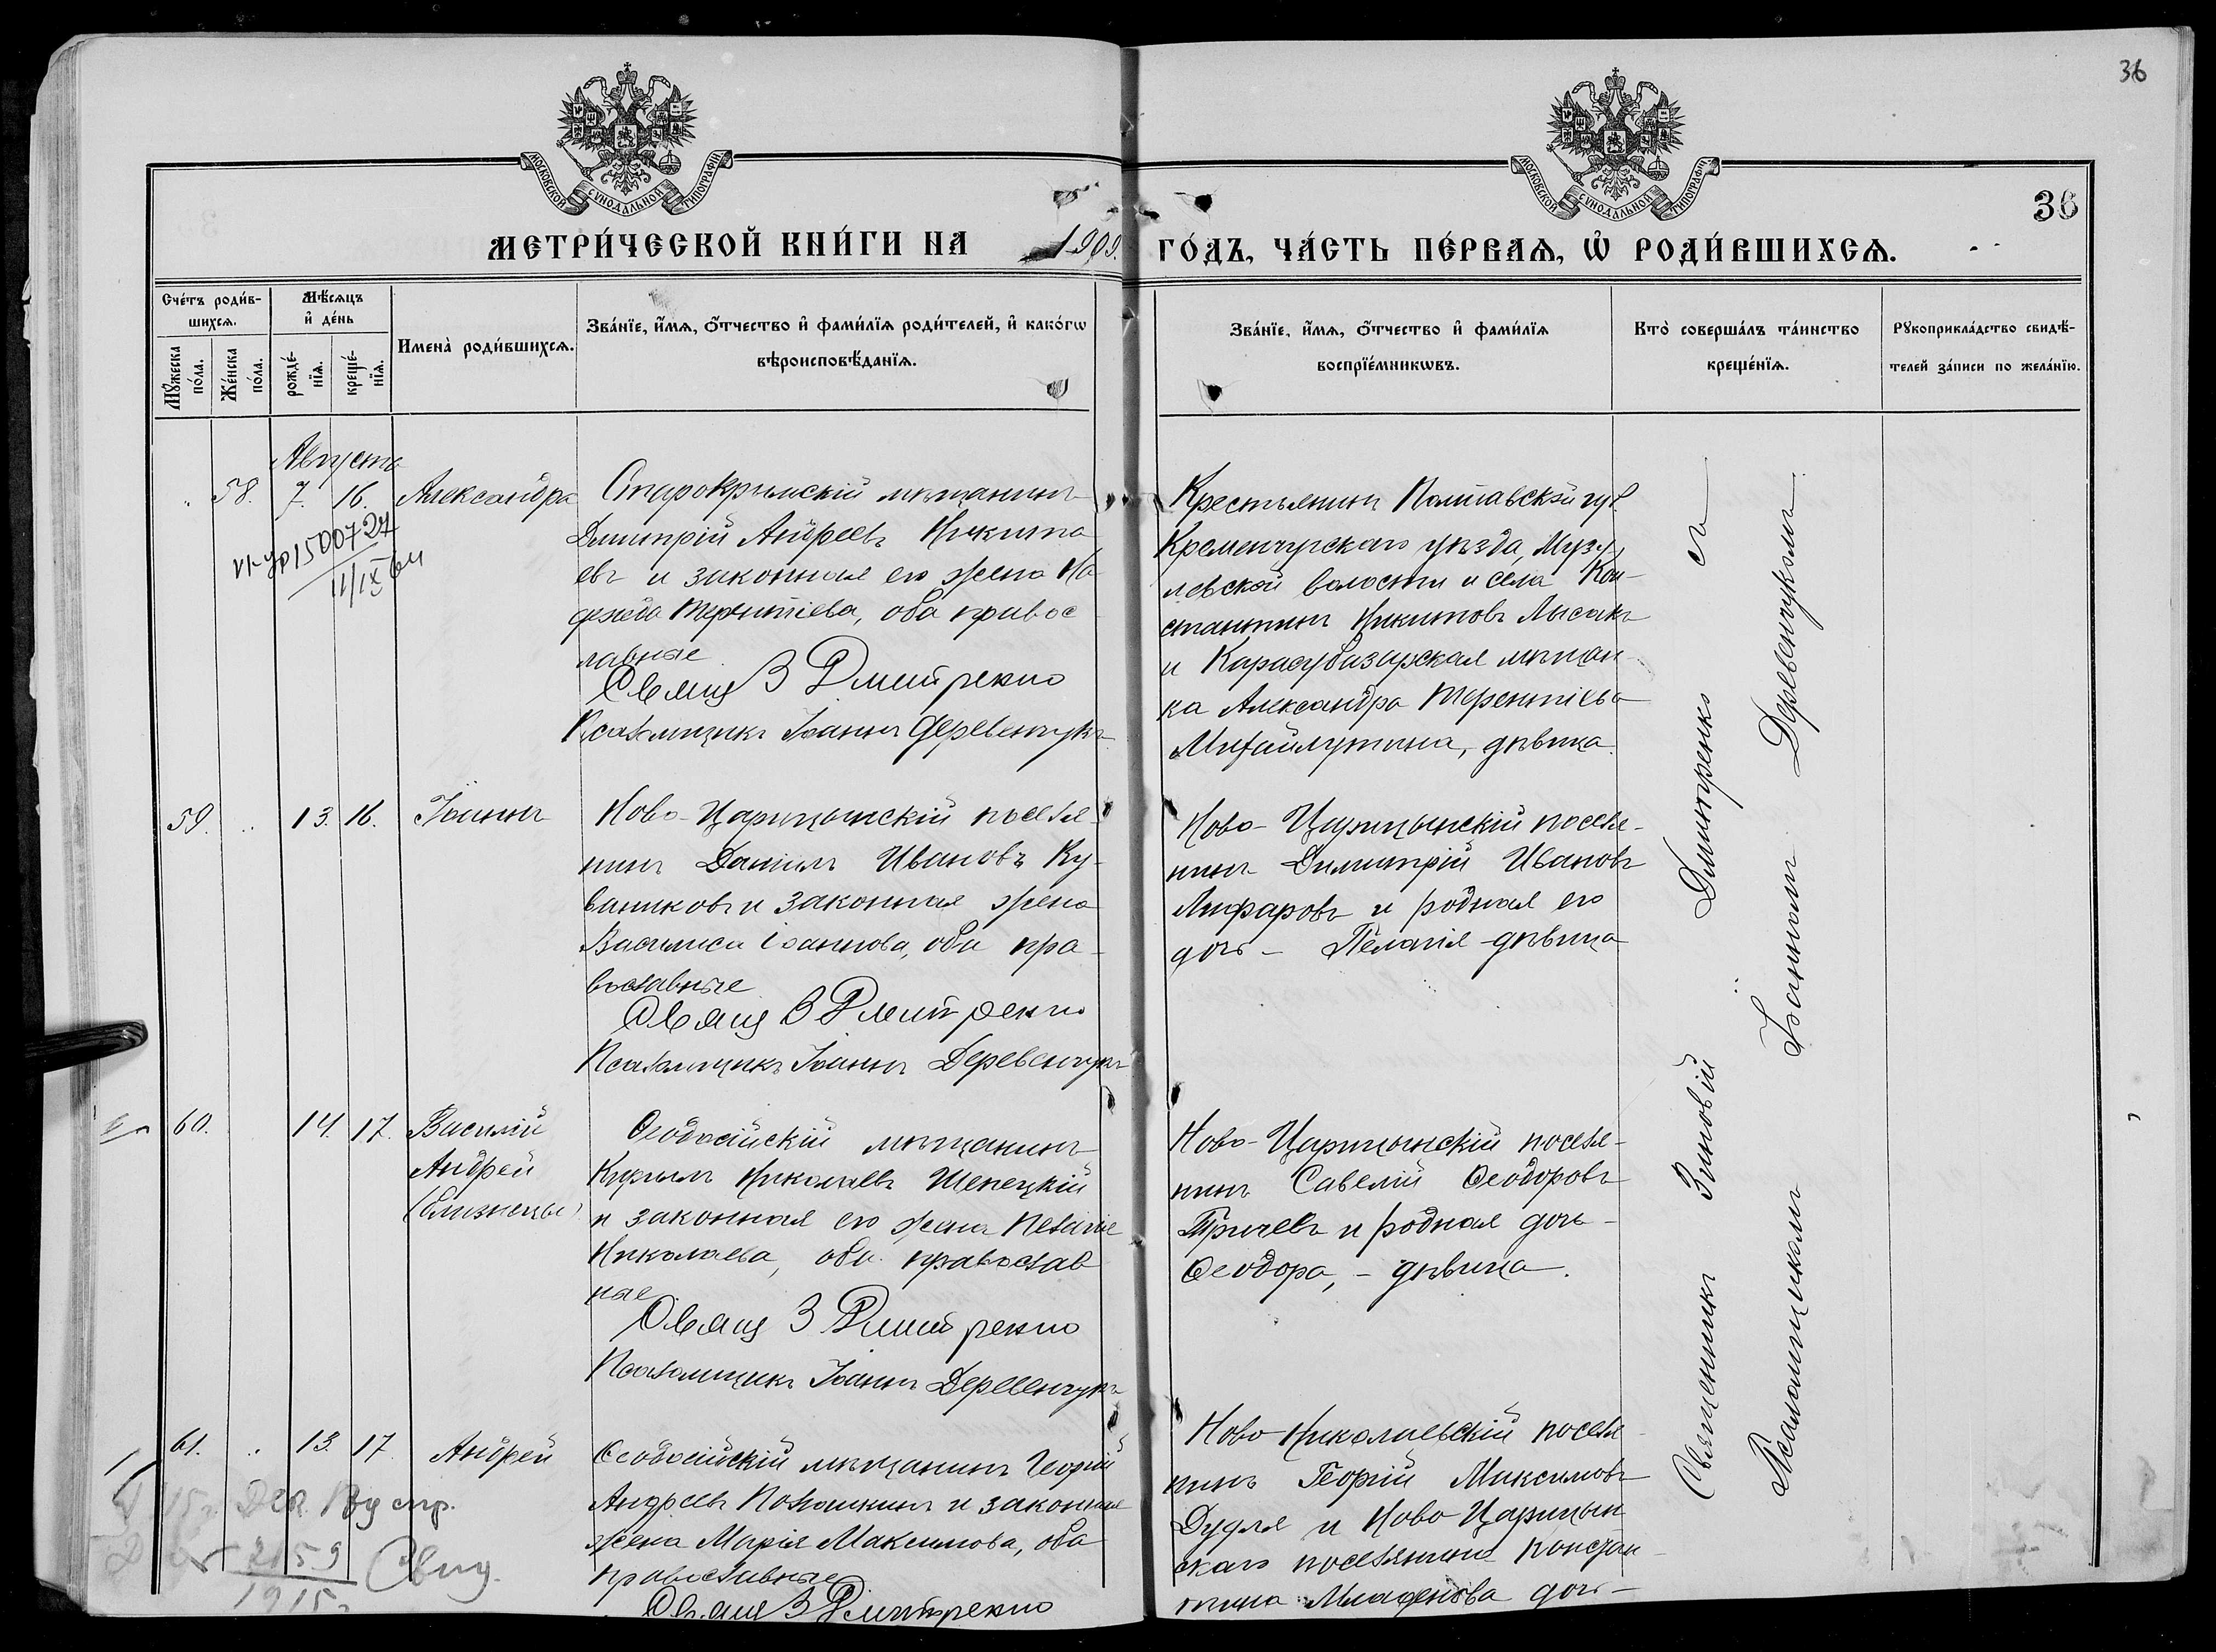 36
МОСКОВСКОЙ СѴНОДАЛЬНОЙ ТИПОГРАФІИ
МОСКОВСКОЙ СѴНОДАЛЬНОЙ ТИПОГРАФІИ
36
МЕТРИ́ЧЕСКОЙ КНИ́ГИ НА 1909. ГО́ДЪ, ЧА́СТЬ ПЕ́РВАѦ, Ѡ҆ РОДИ́ВШИХСѦ.
Сче́тъ роди́в-
шихсѧ.
Мꙋ́жеска
по́ла.
Же́нска
по́ла.
Мѣ́сѧцъ
и҆ де́нь
рожде́-
нїѧ.
креще́-
нїѧ.
Имена̀ роди́вшихсѧ.
Зва́нїе, и҆́мѧ, ѻ҆́тчество и҆ фами́лїѧ роди́телей, и҆ како́гѡ
вѣроисповѣ́данїѧ.
Зва́нїе, и҆́мѧ, ѻ҆́тчество и҆ фами́лїѧ
воспрїе́мникѡвъ.
Кто̀ соверша́лъ та́инство
креще́нїѧ.
Рꙋкоприкла́дство свидѣ́-
телей за́писи по жела́нїю.
Августъ
58. 7. 16. Александра
1500727
11/IX 64
Старокрымскій мѣщанинъ
Димитрій Андреевъ Никита
евъ и законная его жена На
дежда Терентіева, оба правос
лавные
Свящ З Дмитренко
Псаломщикъ Іоаннъ Деревенчукъ
Крестьянинъ Полтавской губ
Кременчугскаго уѣзда,
левской волости и села Кон-
стантинъ Никитовъ Лысакъ
и Карасубазарская мѣщан-
ка Александра Терентіева
дѣвица.
59. 13. 16. Іоаннъ
Ново-Царицынскій поселя-
нинъ Даніилъ Ивановъ Ку-
ванниковъ и законная жена
Василиса Іоаннова, оба пра-
вославные
Свящ З Дмитренко
Псаломщикъ Іоаннъ Деревенчукъ
Ново-Царицынскій поселя-
нинъ Димитрій Ивановъ
Лифаровъ и родная его
дочь - Пелагія - дѣвица
60. 14. 17. Василій
Андрей
(близнецы)
Ѳеодосійскій мѣщанинъ
Кириллъ Николаевъ Шенецкій
и законная его жена Пелагія
Николаева, оба православ
ные
Свящ З Дмитренко
Псаломщикъ Іоаннъ Деревенчукъ
Ново-Царицынскій поселя-
нинъ Савелій Ѳеодоровъ
Тричевъ и родная дочь -
Ѳеодора, - дѣвица.
61. 13. 17. Андрей
Ѳеодосійскій мѣщанинъ Георгій
Андреевъ Полошкинъ и законная
жена Марія Максимова, оба
православные
Свящ З Дмитренко
Ново-Николаевскій поселя-
нинъ Георгій Максимовъ
Дудля и Ново-Царицын
скаго поселянина Констан-
тина Младенова дочь -
2159
1915 г.
Свид.
Священникъ Зиновій Дмитренко съ
Псаломщикомъ Іоанномъ Деревенчукомъ